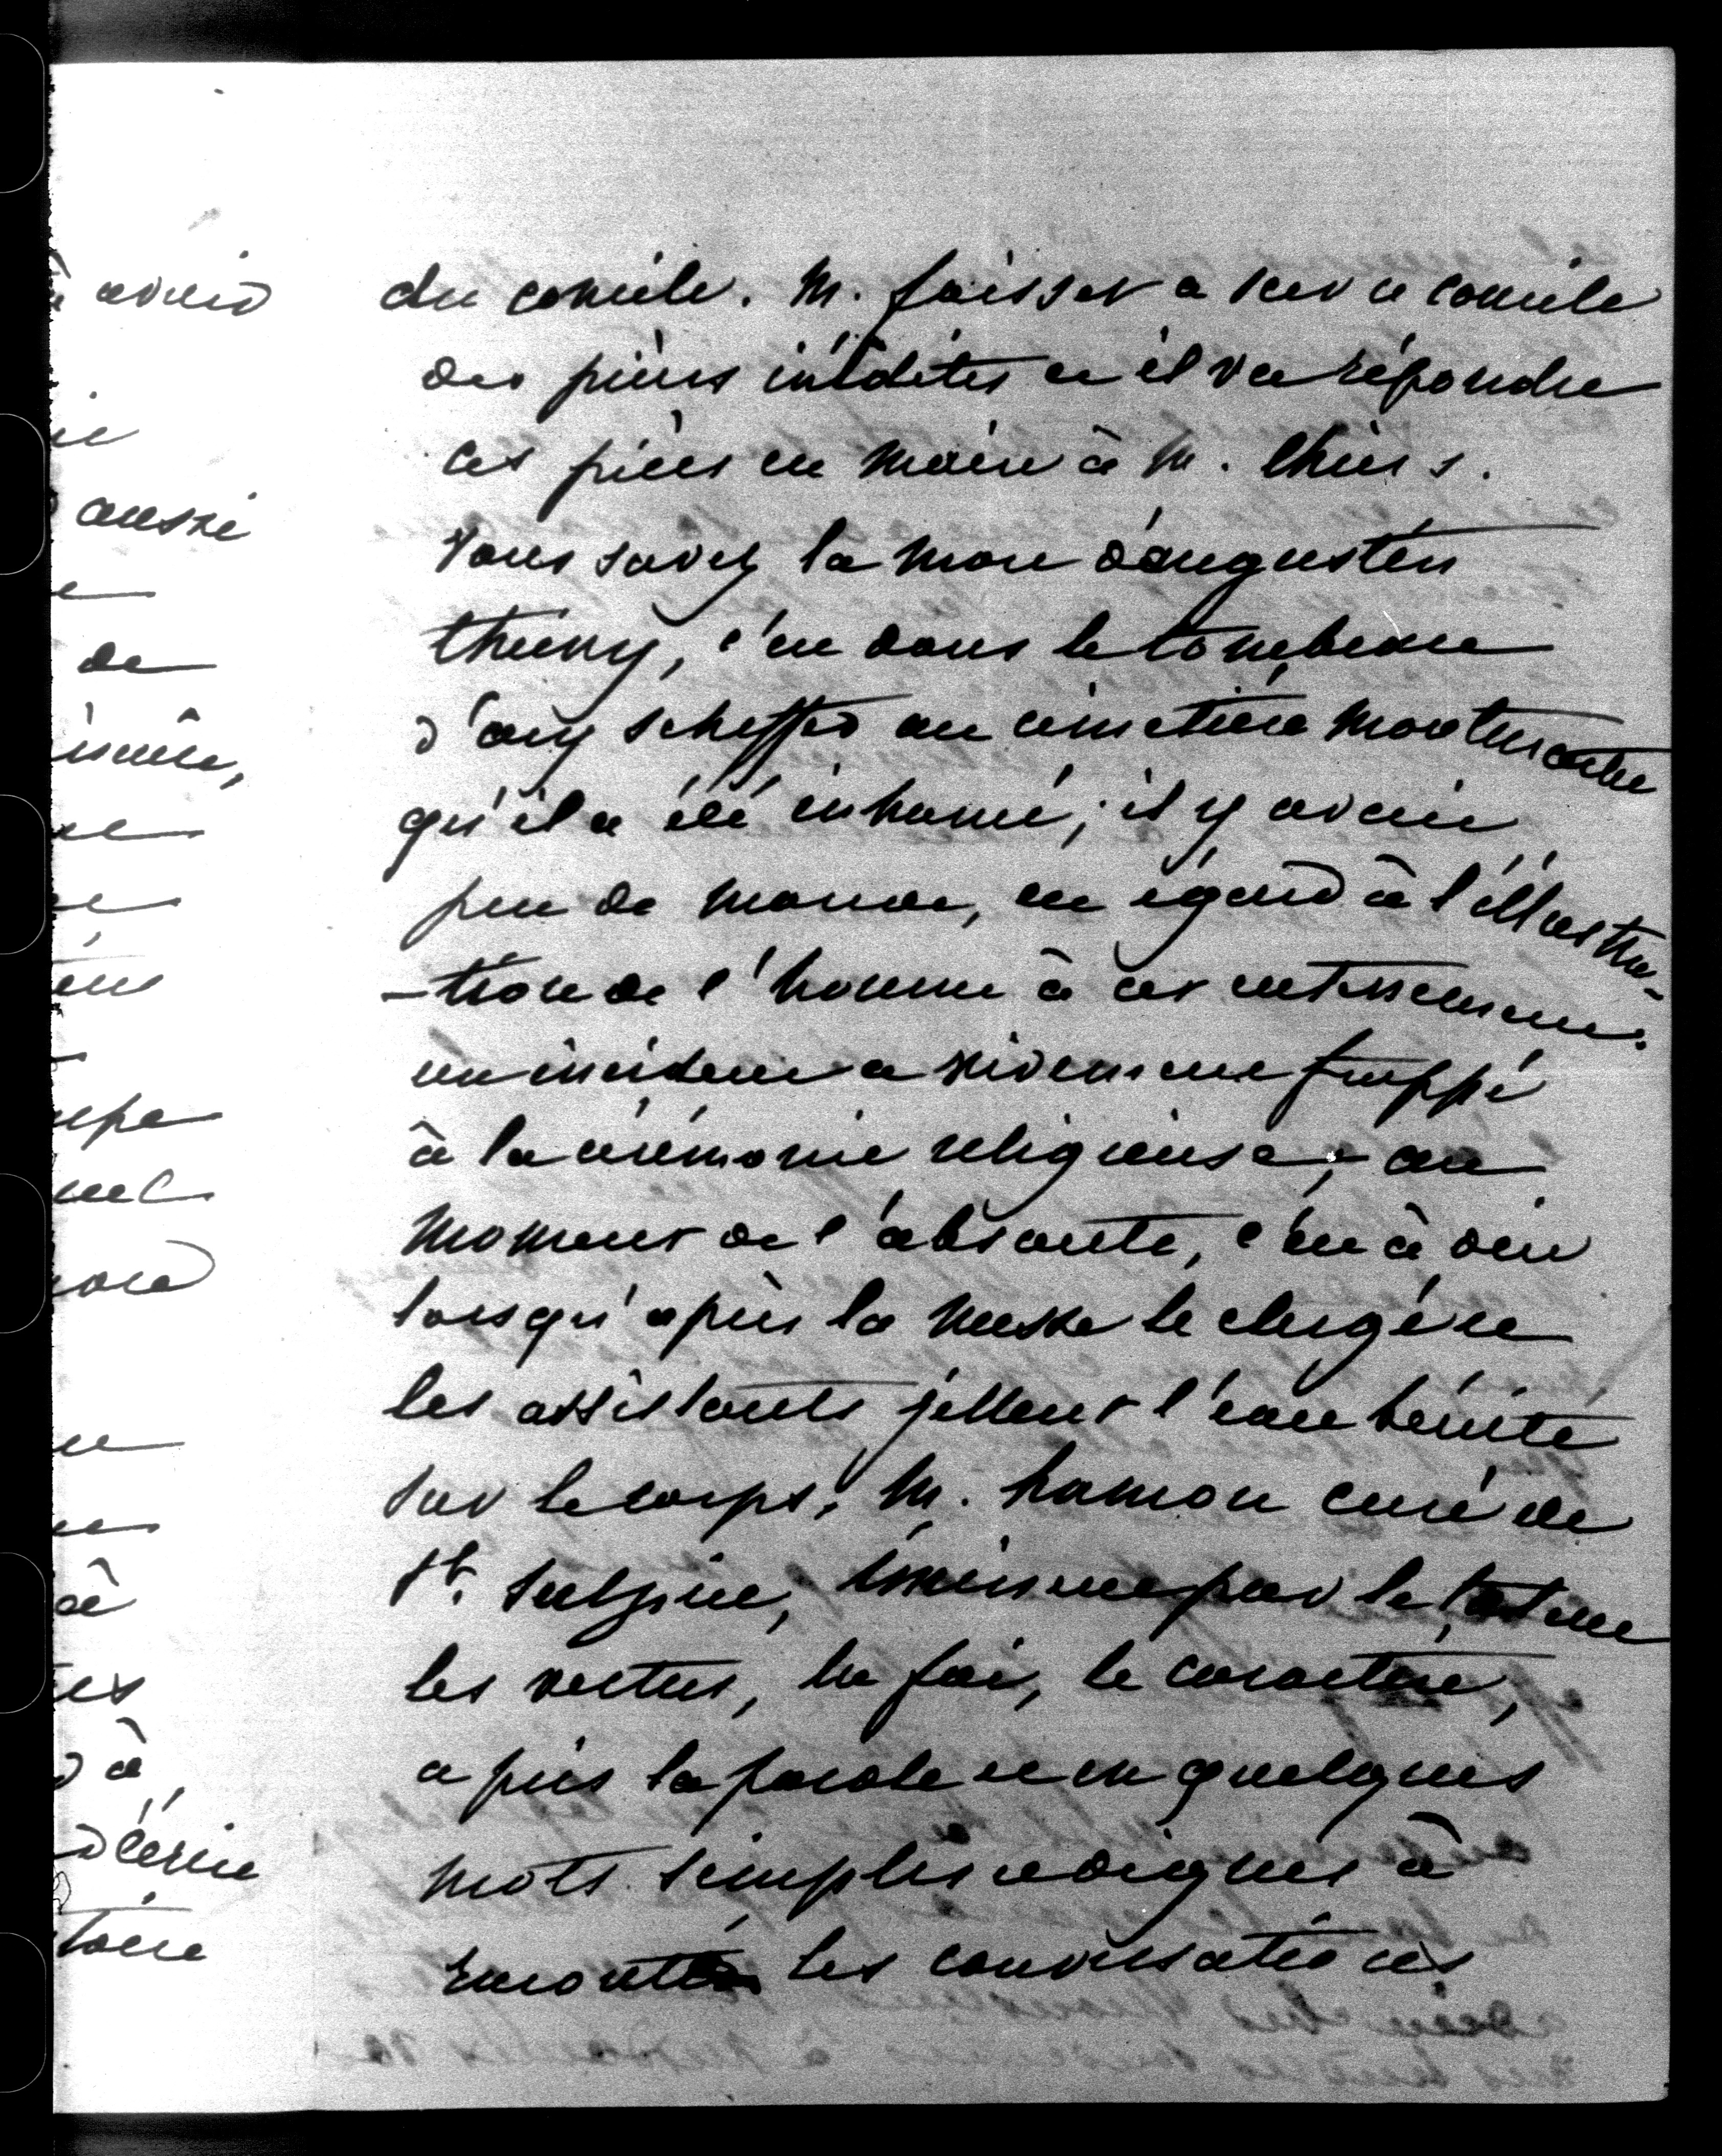 du concile. M. foisset a sur ce concile
des pièces inédites et il va répondre
ces pièces en main à M. thiers.
Vous savez la mort d'augustin
thierry, c'est dans le tombeau
d'ary scheffer au cimetière montmartre
qu'il a été inhumé; il y avait
peu de monde, eu égard à l'illustra-
-tion de l'homme à cet enterrement.
un incident a vivement frappé
à la cérémonie religieuse; au
moment de l'absoute, c'est à dire
lorsqu'après la messe le clergé et
les assistants jettent l'eau bénite
sur le corps, M. hamon curé de
St. Sulpice, éminent par le talent
les vertus, la foi, le caractère,
a pris la parole et en quelques
mots simples et dignes à
raconté les conversations
avait
aussi
de
à
d'écrire